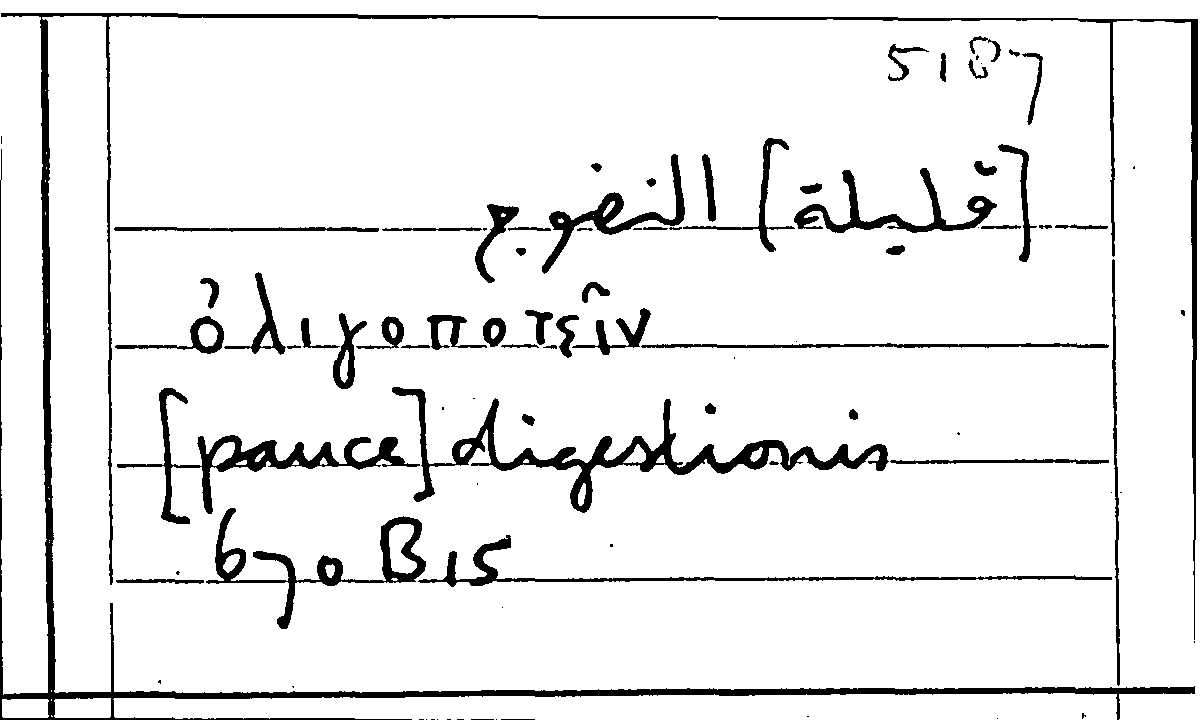 5187
[قليلة] النضوج
ὀλιγοποτεῖν
[pauce] digestionis
670 B15